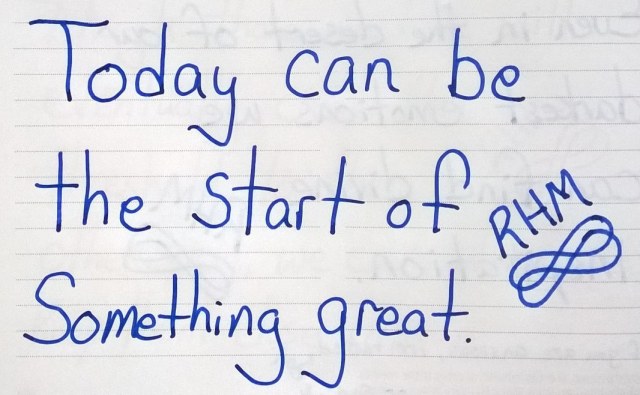 Today can be
the start of
Something great.
RHM